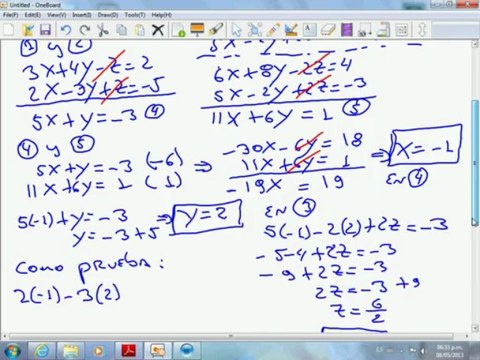 Untitled - OneBoard
File(F) Edit(E) View(V) Insert(I) Format(O) Tools(T) Help(H)
① y ②
3X+4Y-Z=2
2X-3Y+Z=-5
5X+Y=-3 ④
6X+8Y-2Z=4
5X-2Y+2Z=-3
11X+6Y=1 ⑤
④ y ⑤
5X+Y=-3 (-6) ⇒
11X+6Y=1 (1)
-30X-6Y=18
11X+6Y=1
-19X=19
⇒ X=-1
EN ④
5(-1)+Y=-3 ⇒ Y=2
Y=-3+5
EN ③
5(-1)-2(2)+2Z=-3
-5-4+2Z=-3
-9+2Z=-3
2Z=-3+9
Z=6/2
Como prueba:
2(-1)-3(2)
ES
06:33 p.m.
08/05/2013